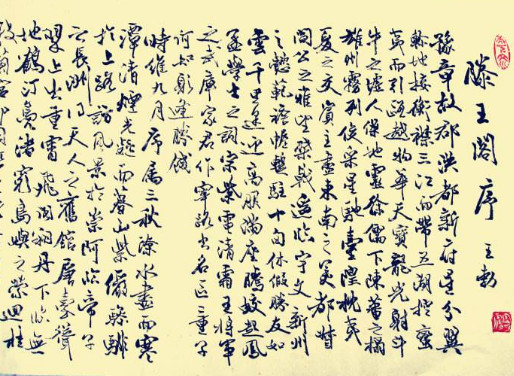 滕王阁序 王勃
豫章故都洪都新府星分翼
轸地接衡襟三江而带五湖控蛮
荆而引瓯越物华天宝龙光射斗
牛之墟人傑地靈徐孺下陳蕃之榻
雄州霧列俊采星馳臺隍枕夷
夏之交賓主盡東南之美都督
閻公之雅望棨戟遥临宇文新州
之懿範襜帷暫駐十旬休假勝友如
雲千里逢迎高朋滿座騰蛟起鳳
孟學士之詞宗紫電清霜王將軍
之武庫家君作宰路出名區童子
何知躬逢勝餞
時維九月序屬三秋潦水盡而寒
潭清煙光凝而暮山紫儼驂騑
於上路訪風景於崇阿臨帝子
之長洲得天人之舊館层臺聳
翠上出重霄飛閣翔丹下临無
地鶴汀凫渚窮島嶼之縈迴桂